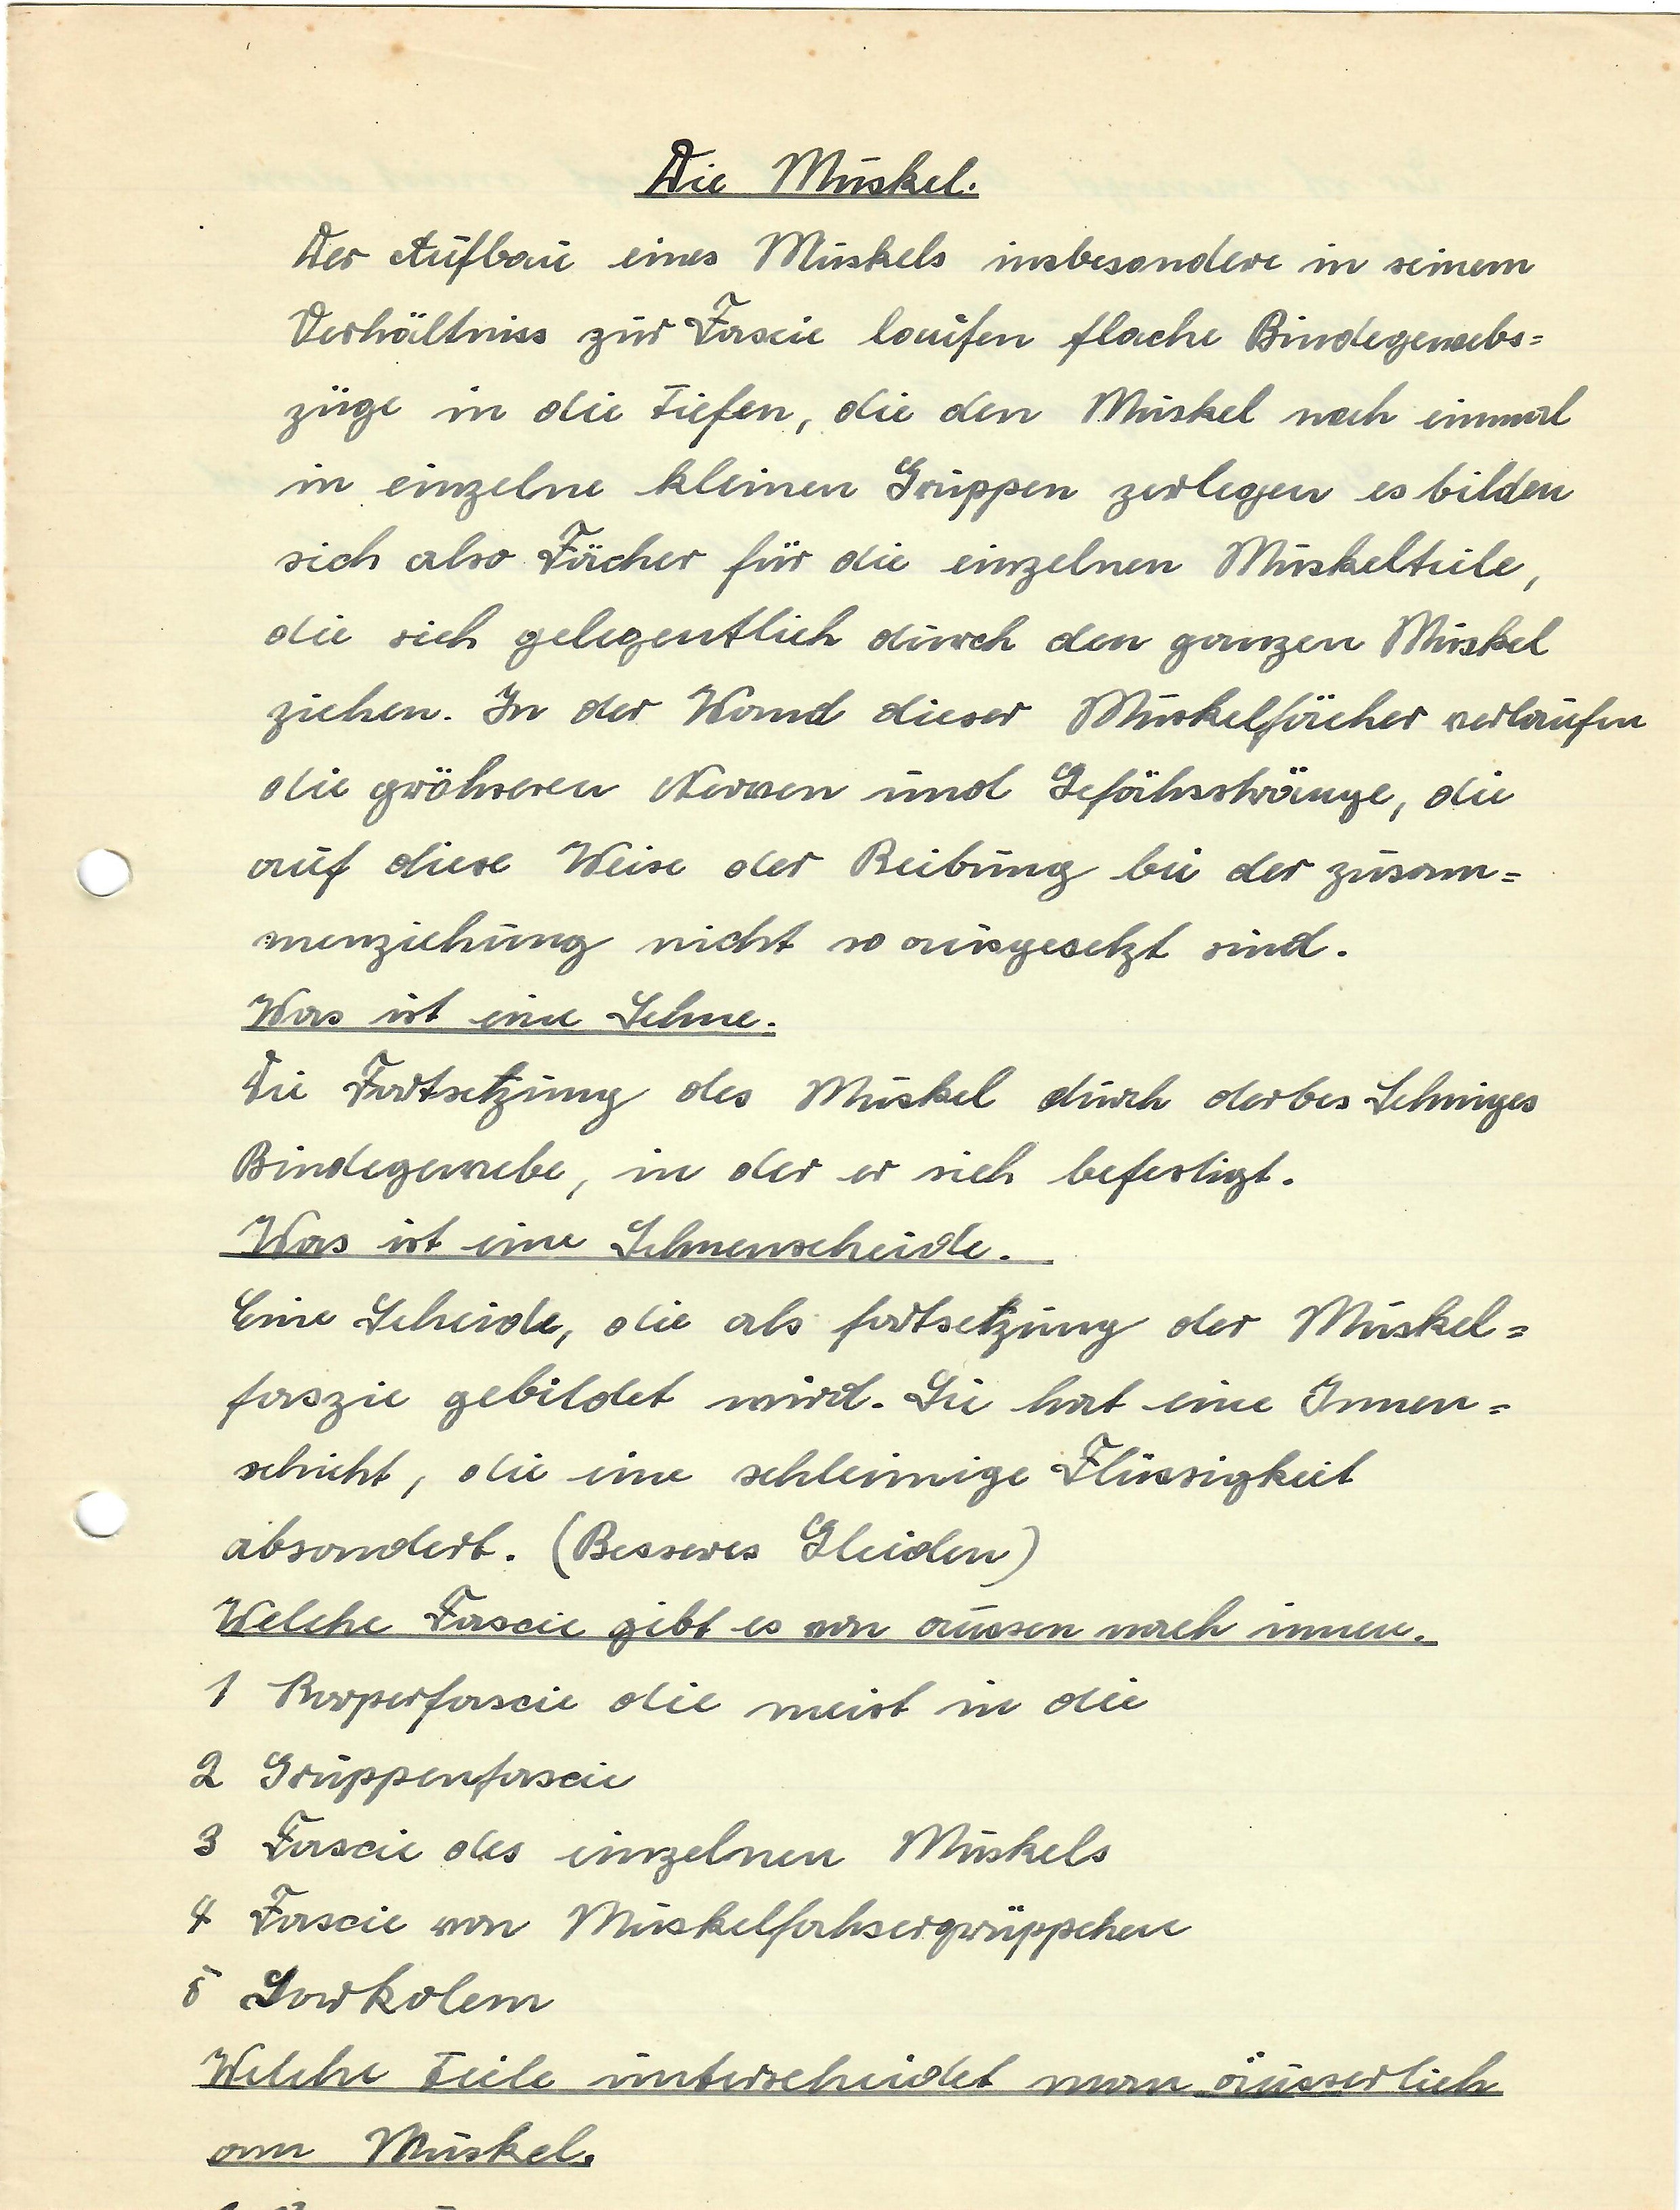 Die Muskel.
Der Aufbau eines Muskels insbesondere in seinem
Verhältniss zur Fascie laufen flache Bindegewebs=
züge in die Tiefen, die den Muskel noch einmal
in einzelne kleinen Gruppen zerlegen es bilden
sich also Fächer für die einzelnen Muskelteile,
die sich gelegentlich durch den ganzen Muskel
ziehen. In der Wand dieser Muskelfächer verlaufen
die gröhseren Nerven und Gefähsstränge, die
auf diese Weise der Reibung bei der zusam=
menziehung nicht so ausgesetzt sind.
Was ist eine Sehne.
Die Fortsetzung des Muskel durch derbes Sehniges
Bindegewebe, in der er sich befestigt.
Was ist eine Sehnenscheide.
Eine Scheide, die als fortsetzung der Muskel=
faszie gebildet wird. Sie hat eine Innen=
schicht, die eine schleimige Flüssigkeit
absondert. (Besseres Gleiden)
Welche Fascie gibt es von aussen nach innen.
1 Korperfascie die meist in die
2 Gruppenfascie
3 Fascie des einzelnen Muskels
4 Fascie von Muskelfahsergrüppchen
5 Sarkolem
Welche Teile unterscheidet man äusserlich
am Muskel.